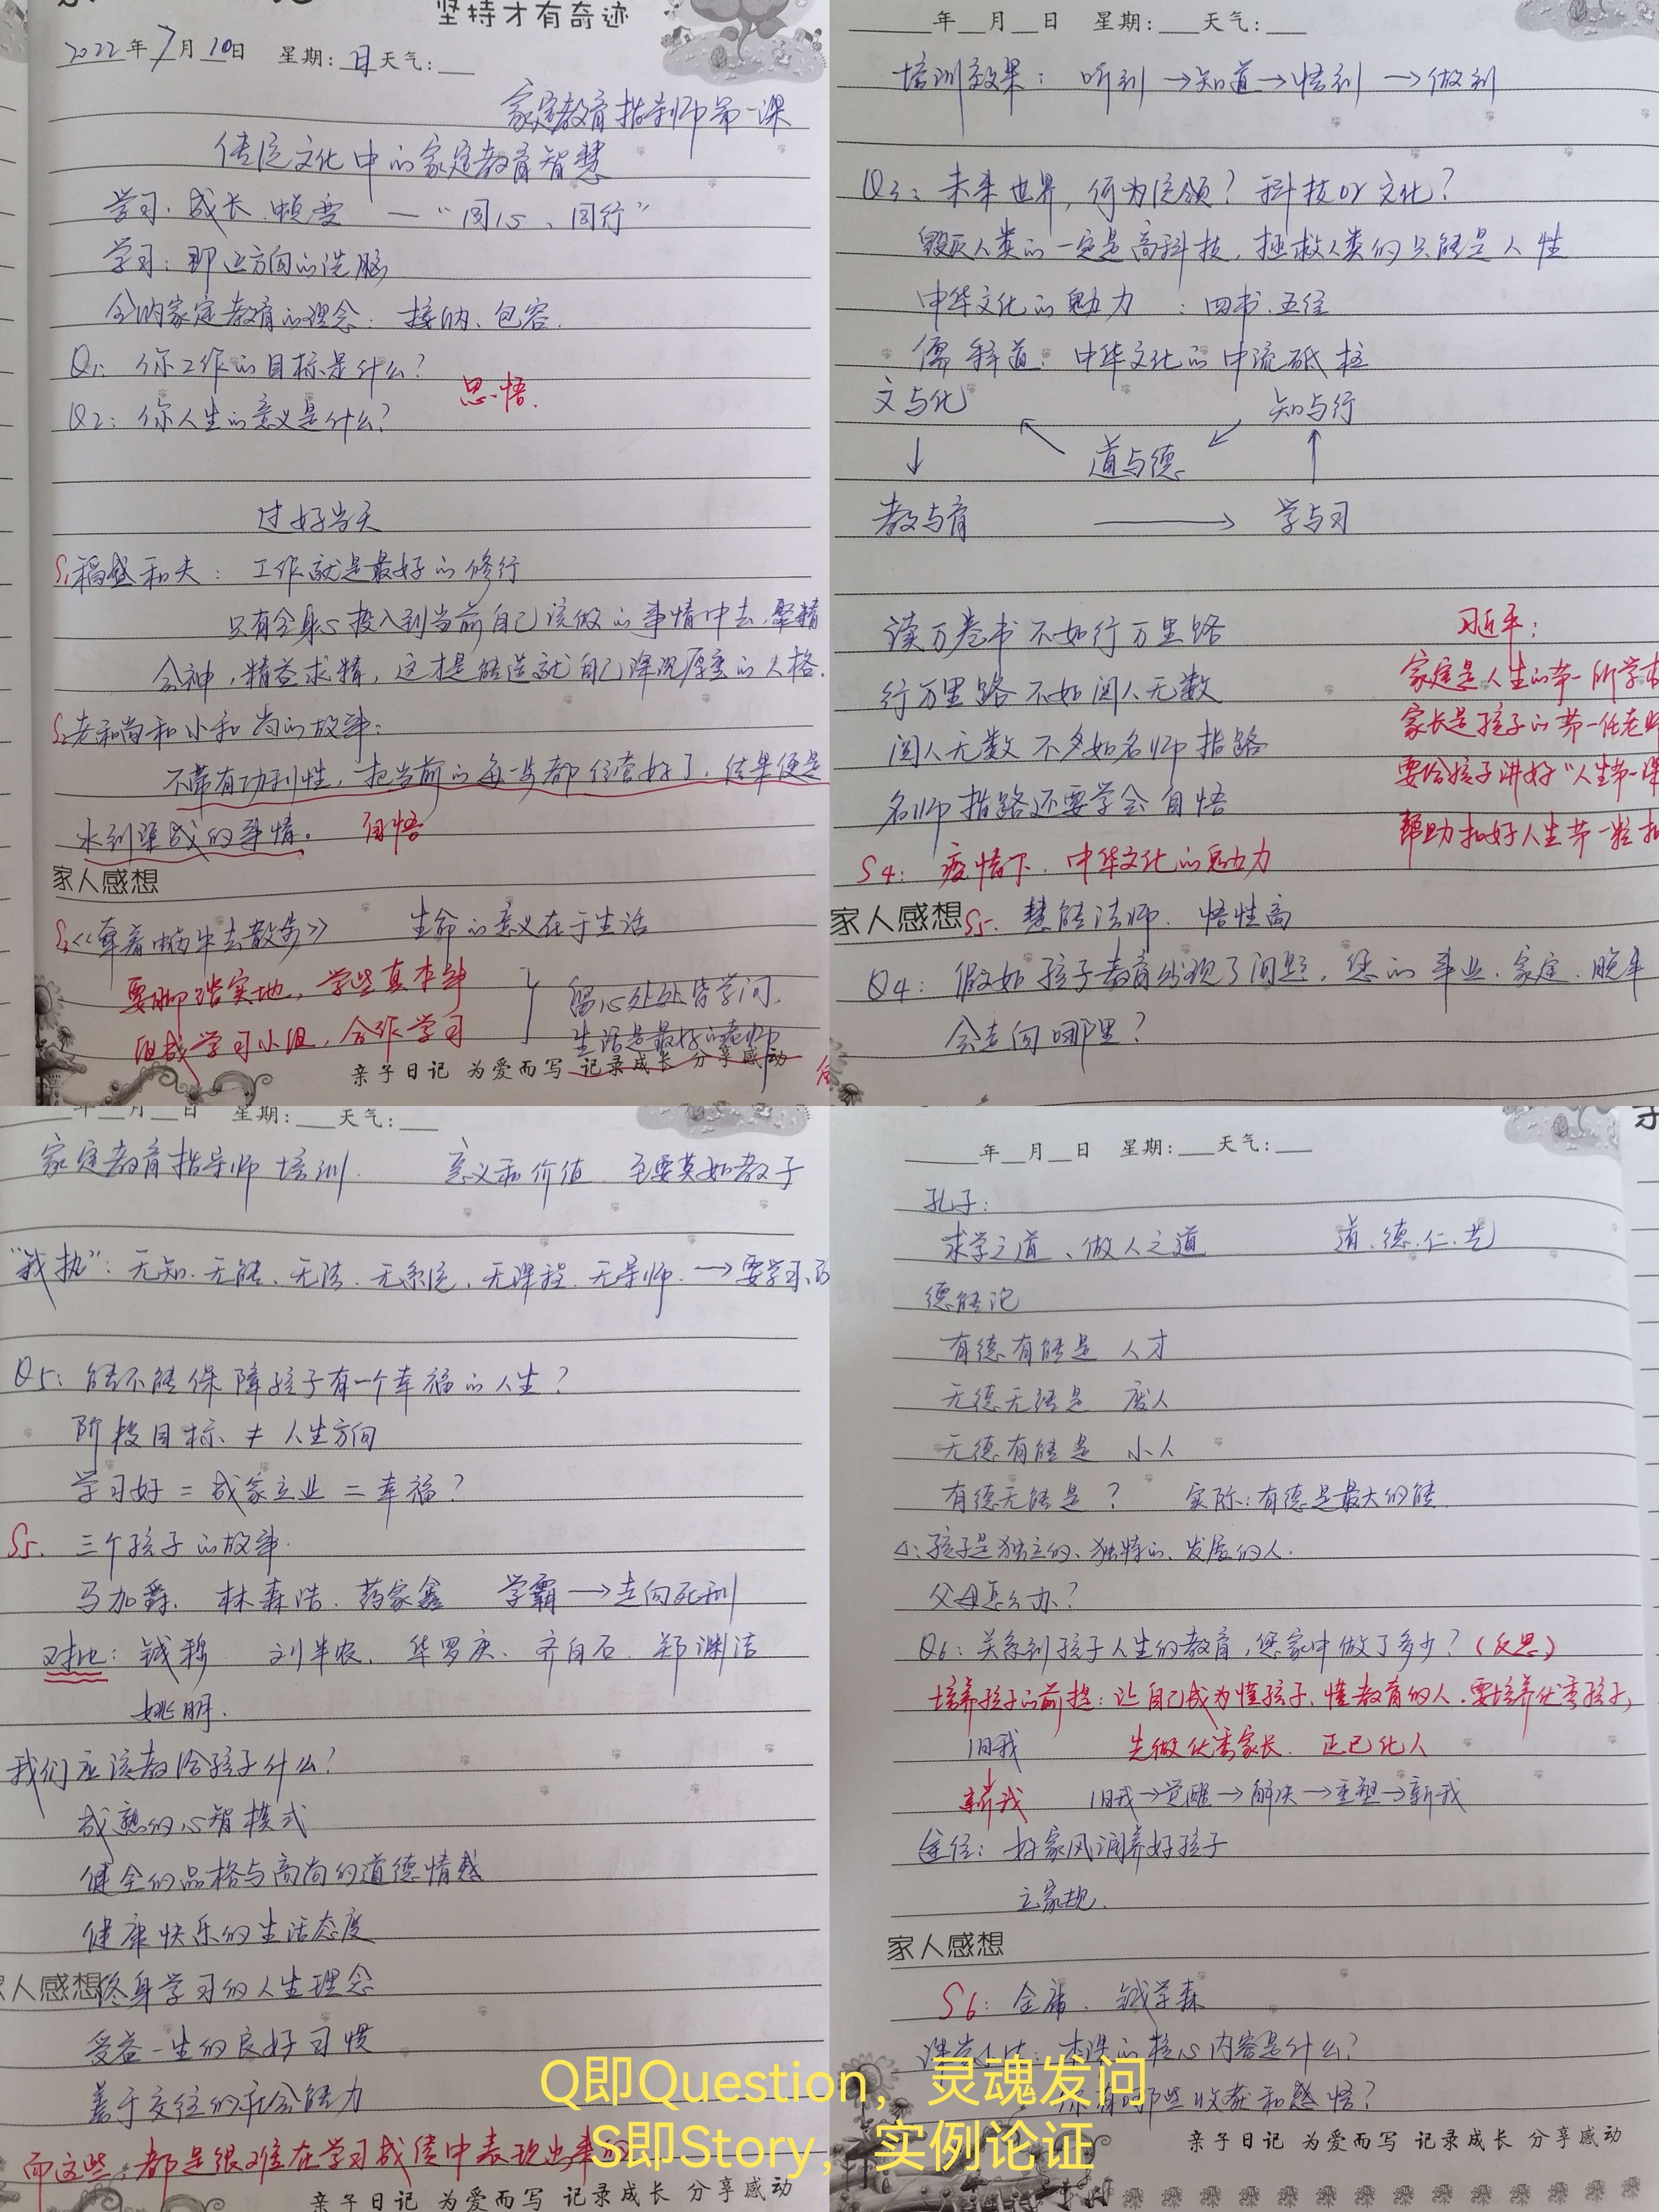 坚持才有奇迹
2022年7月10日 星期:日 天气:
家庭教育指导师第一课
传统文化中的家庭教育智慧
学习、成长、蝶变 — “同心、同行”
学习:即正方向的洗脑
家庭教育的理念:接纳、包容.
Q1:你工作的目标是什么?
思.悟.
Q2:你人生的意义是什么?
过好当天
S1稻盛和夫:工作就是最好的修行
只有全身心投入到当前自己该做的事情中去,聚精
会神,精益求精,这才是能造就自己深沉厚重的人格.
S2老和尚和小和尚的故事:
不带有功利性,把当前的每一步都经营好了,结果便是
水到渠成的事情。 自悟
家人感想
S3《牵着蜗牛去散步》 生命的意义在于生活
要脚踏实地,学些真本事 留心处处皆学问,
组成学习小组,合作学习 生活是最好的老师
亲子日记 为爱而写 记录成长 分享感动
年 月 日 星期: 天气:
培训效果: 听到→知道→悟到→做到
Q3:未来世界,何为统领?科技or文化?
毁灭人类的一定是高科技,拯救人类的只能是人性
中华文化的魅力 :四书.五经
儒释道:中华文化的中流砥柱
文与化 知与行
道与德
教与育 → 学与习
读万卷书不如行万里路
习近平:
行万里路不如阅人无数
家庭是人生的第一所学校
阅人无数不如名师指路
家长是孩子的第一任老师
要给孩子讲好“人生第一课
名师指路还要学会自悟
帮助扣好人生第一粒扣
S4:疫情下.中华文化的魅力
家人感想 S5.慧能法师.悟性高
Q4:假如孩子教育出现了问题,您的事业.家庭.晚年
会走向哪里?
年 月 日 星期: 天气:
家庭教育指导师培训. 意义和价值.至要莫如教子
“我执”:无知.无能、无法.无系统、无课程.无导师.→要学习、
Q5:能不能保障孩子有一个幸福的人生?
阶段目标≠人生方向
学习好=成家立业=幸福?
S5.三个孩子的故事.
马加爵.林森浩.药家鑫 学霸→走向死刑
对比:钱穆 刘半农.华罗庚.齐白石.郑渊洁
姚明.
我们应该教给孩子什么?
成熟的心智模式
健全的品格与高尚的道德情感
健康快乐的生活态度
家人感想 终身学习的人生理念
受益一生的良好习惯
善于交往的社会能力
而这些,都是很难在学习成绩中表现出来的
亲子日记 为爱而写 记录成长 分享感动
年 月 日 星期: 天气:
孔子:
求学之道、做人之道 道.德.仁.艺
德能论
有德有能是 人才
无德无能是 废人
无德有能是 小人
有德无能是? 实际:有德是最大的能.
△:孩子是独立的、独特的、发展的人.
父母怎么办?
Q6:关系到孩子人生的教育,您家中做了多少?(反思)
培养孩子的前提:让自己成为懂孩子、懂教育的人.要培养优秀孩子,
旧我 先做优秀家长.正己化人
新我 旧我→觉醒→解决→重塑→新我
途径:好家风润养好孩子
立家规.
家人感想
S6:金庸.钱学森
本课的核心内容是什么?
你有哪些收获和感悟?
亲子日记 为爱而写 记录成长 分享感动
Q即Question，灵魂发问
S即Story，实例论证